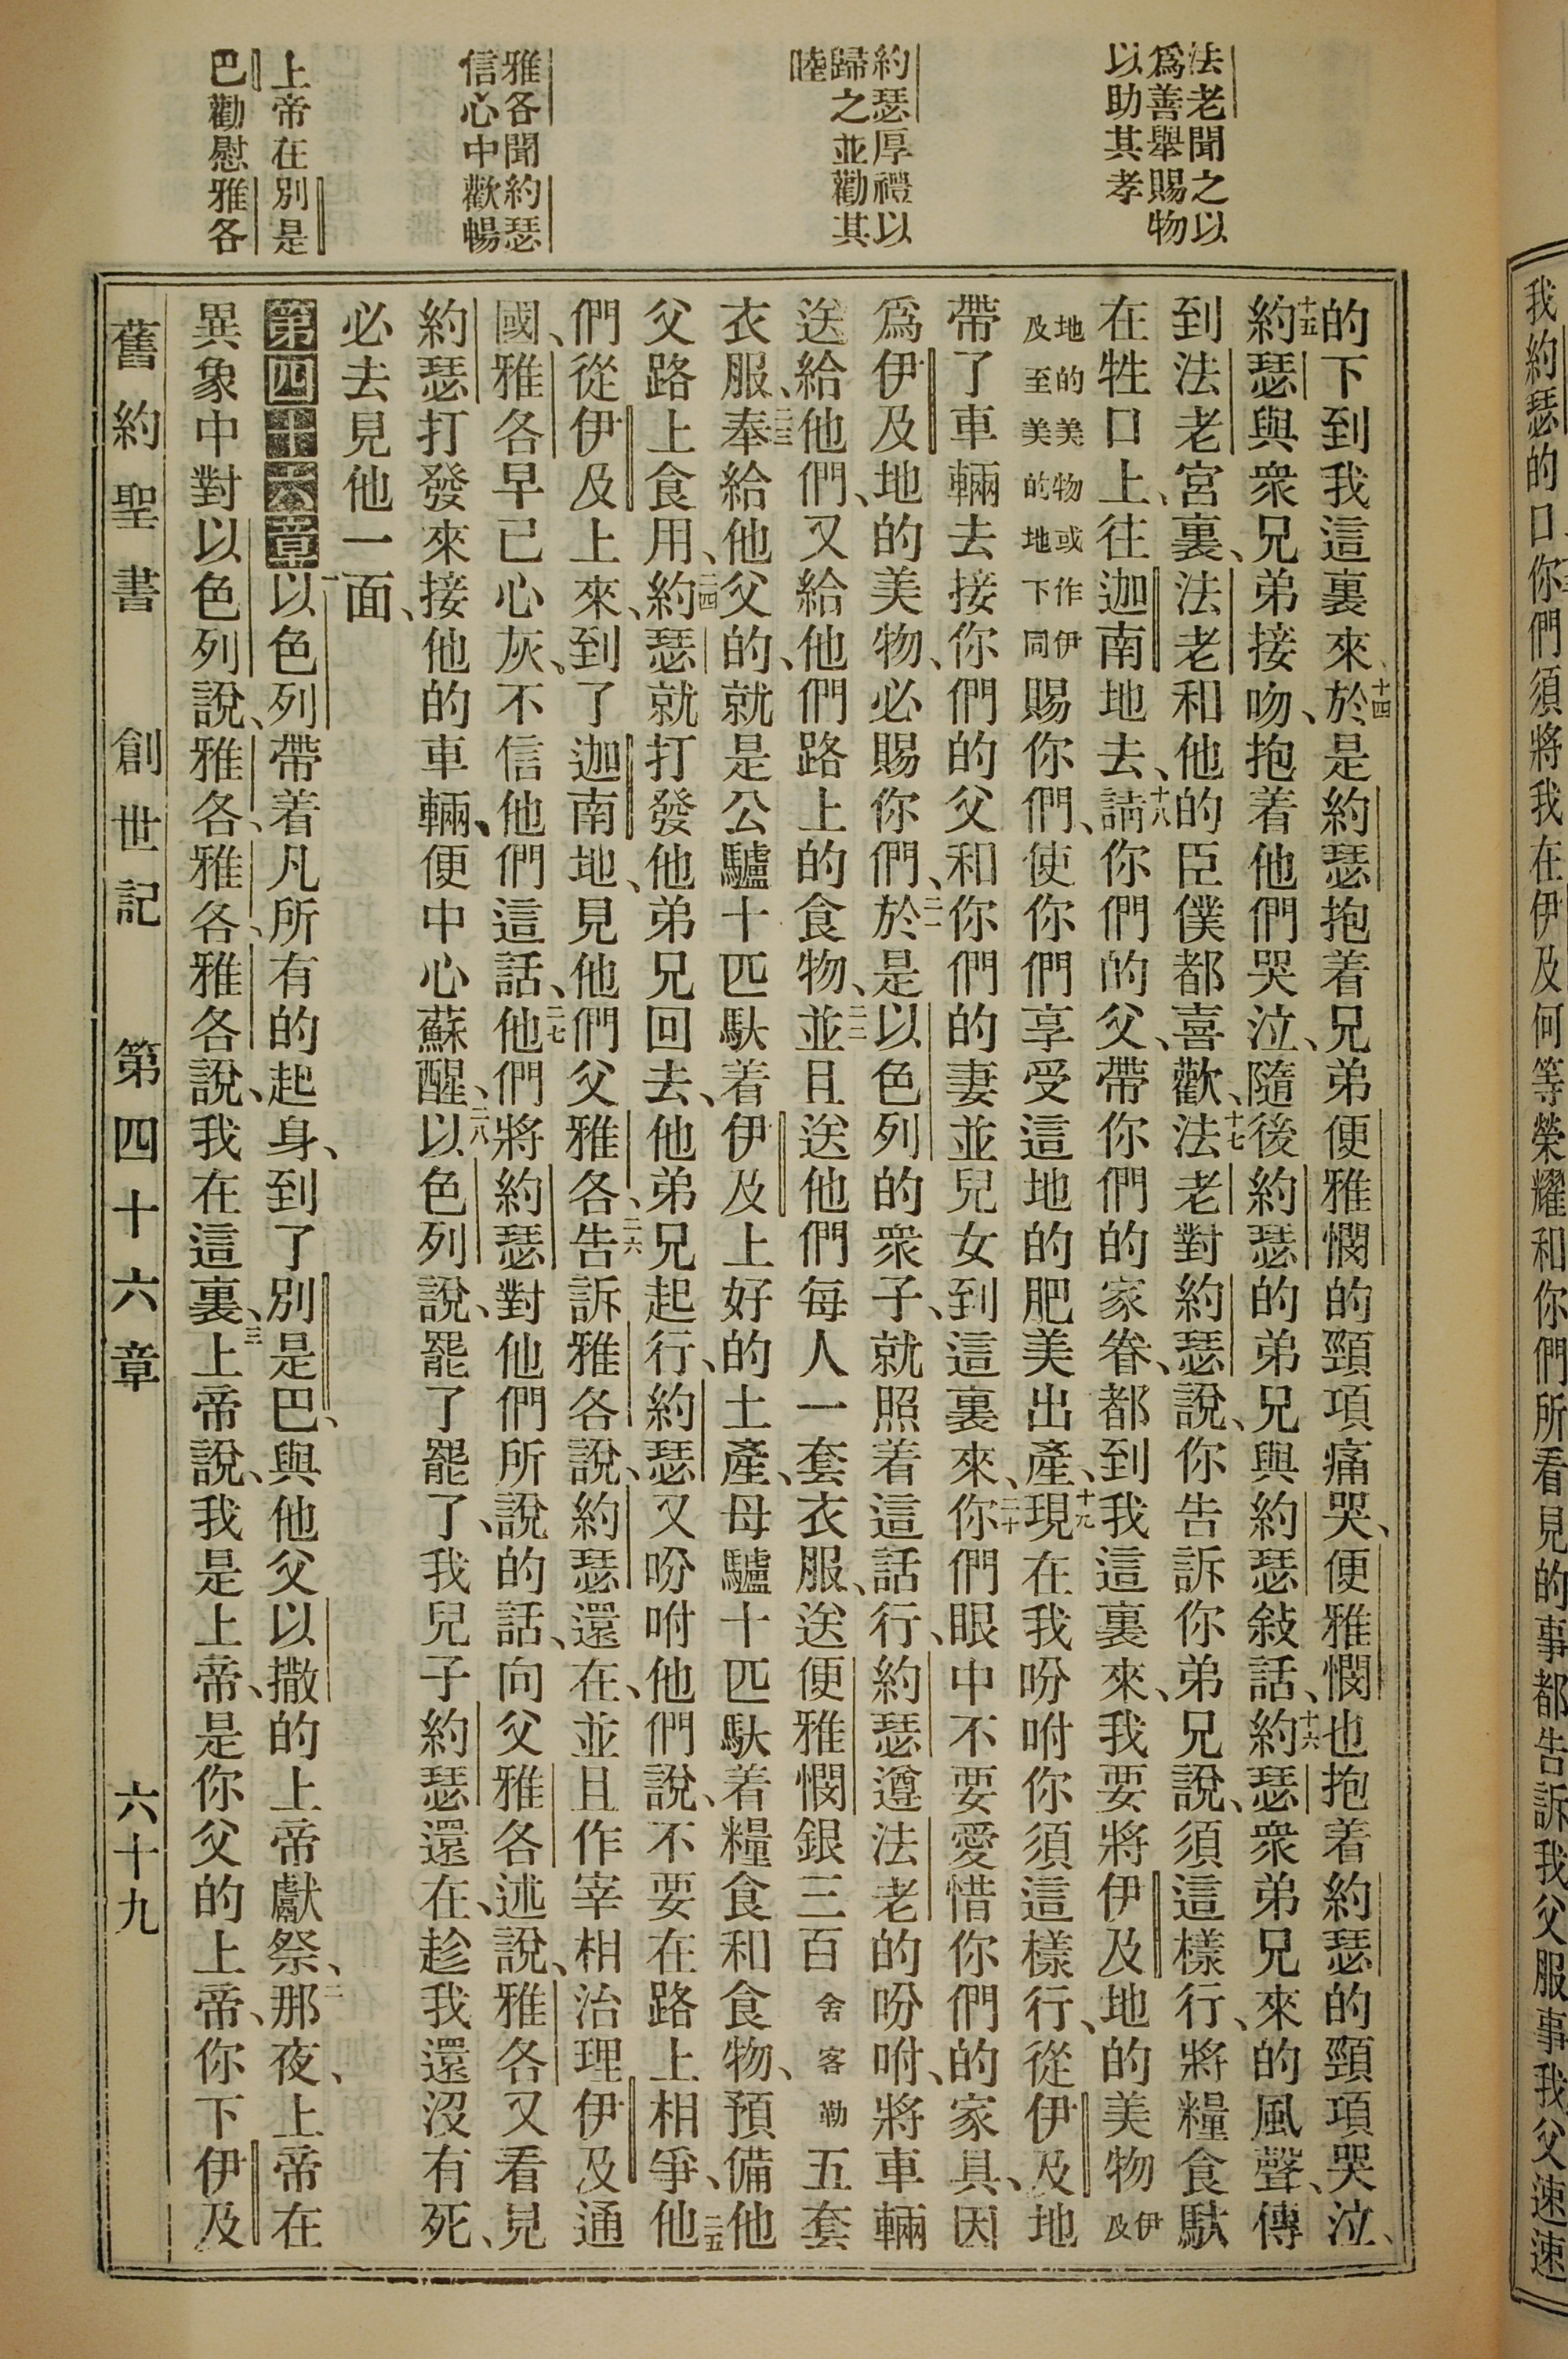 我約瑟的口你們須將我在伊及何等榮耀和你們所看見的事都告訴我父服事我父速速
法老聞之以
爲善舉賜物
以助其孝
約瑟厚禮以
歸之並勸其
睦
雅各聞約瑟
信心中歡暢
上帝在別是
巴勸慰雅各
的下到我這裏來、十四於是約瑟抱着兄弟便雅憫的頸項痛哭、便雅憫也抱着約瑟的頸項哭泣、
十五約瑟與衆兄弟接吻、抱着他們哭泣、隨後約瑟的弟兄與約瑟敍話、十六約瑟衆弟兄來的風聲、傳
到法老宮裏、法老和他的臣僕都喜歡、十七法老對約瑟說、你告訴你弟兄說、須這樣行、將糧食馱
在牲口上、往迦南地去、十八請你們的父、帶你們的家眷、都到我這裏來、我要將伊及地的美物伊及
地的美物或作伊及至美的地下同賜你們、使你們享受這地的肥美出產、十九現在我吩咐你須這樣行、從伊及地
帶了車輛去接你們的父和你們的妻並兒女到這裏來、二十你們眼中不要愛惜你們的家具、因
爲伊及地的美物、必賜你們、二一於是以色列的衆子、就照着這話行、約瑟遵法老的吩咐、將車輛
送給他們、又給他們路上的食物、二二並且送他們每人一套衣服、送便雅憫銀三百舍客勒五套
衣服、二三奉給他父的、就是公驢十匹馱着伊及上好的土產、母驢十匹馱着糧食和食物、預備他
父路上食用、二四約瑟就打發他弟兄回去、他弟兄起行、約瑟又吩咐他們說、不要在路上相爭、二五他
們從伊及上來、到了迦南地、見他們父雅各、二六告訴雅各說、約瑟還在、並且作宰相治理伊及通
國、雅各早已心灰、不信他們這話、二七他們將約瑟對他們所說的話、向父雅各述說、雅各又看見
約瑟打發來接他的車輛、便中心蘇醒、二八以色列說、罷了罷了、我兒子約瑟還在、趁我還沒有死、
必去見他一面、
第四十六章一以色列帶着凡所有的起身、到了別是巴、與他父以撒的上帝獻祭、二那夜、上帝在
異象中對以色列說、雅各、雅各、雅各說、我在這裏、三上帝說、我是上帝、是你父的上帝、你下伊及
舊約聖書 創世記 第四十六章 六十九